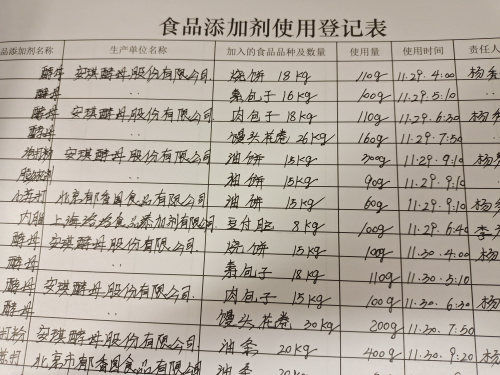 食品添加剂使用登记表
品添加剂名称 生产单位名称 加入的食品品种及数量 使用量 使用时间 责任人
酵母 安琪酵母股份有限公司 烧饼 18kg 110g 11.29.4:00 杨
酵母 ·· 素包子 16kg 100g 11.29.5:10 ··
酵母 安琪酵母股份有限公司 肉包子 18kg 110g 11.29.6:30 杨
酵母 ·· 馒头花卷 26kg 160g 11.29.7:50 ··
安琪酵母股份有限公司 油饼 15kg 300g 11.29.9:10 杨
·· 油饼 15kg 90g 11.29.9:10
北京郁香园食品有限公司 油饼 15kg 60g 11.29.9:10 杨
内脂 上海 食品添加剂有限公司 豆付脑 8kg 100g 11.29.6:40 李
酵母 安琪酵母股份有限公司 烧饼 15kg 100g 11.30.4:00 杨
酵母 ·· 素包子 18kg 110g 11.30.5:10
酵母 安琪酵母股份有限公司 肉包子 15kg 100g 11.30.6:30 杨
酵母 ·· 馒头花卷 30kg 200g 11.30.7:50
安琪酵母股份有限公司 油条 20kg 400g 11.30.9:20 杨
北京市郁香园食品有限公司 油条 20kg